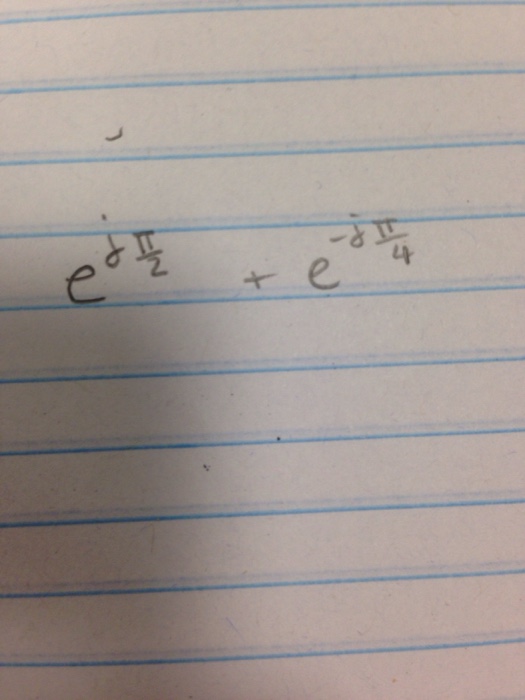 e^{j\frac{π}{2}} + e^{-j\frac{π}{4}}